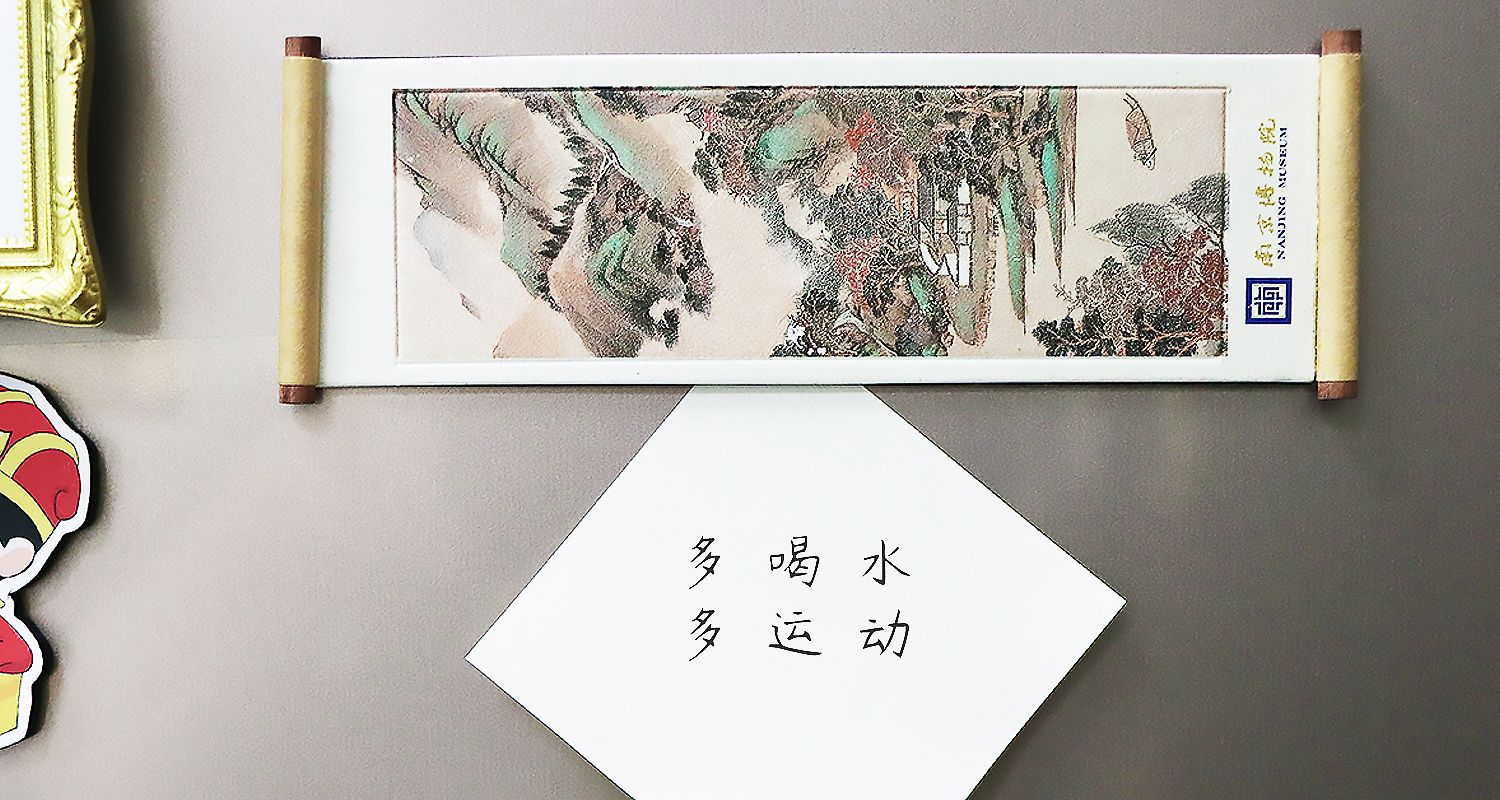 南京博物院
NANJING MUSEUM
多喝水
多运动